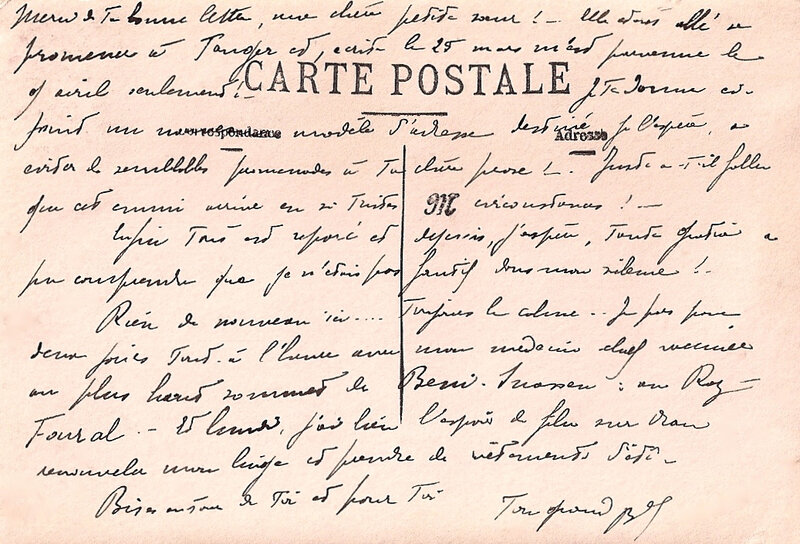 Merci de Ta bonne lettre, ma chère petite sœur ! — Elle a dû allé se
promener à Tanger et, écrite le 25 mars m'est parvenue le
9 avril seulement !
CARTE POSTALE
Je Te donne ci-
joint un modèle d'adresse destiné, je l'espère, à
Correspondance
Adresse
éviter de semblables promenades à Ta chère prose ! — Juste a-t-il fallu
que cet ennui arrive en si Tristes circonstances ! —
M
Enfin Tout est réparé et depuis, j'espère, Toute
pu comprendre que je n'étais pas fautif dans mon silence ! —
Rien de nouveau ici .... Toujours le calme .. Je pars pour
deux jours Tout à l'heure avec mon médecin chef
au plus haut sommet de Beni-Snassen : au Raz-
Foural — Et lundi, j'ai bien l'espoir de filer sur Oran
renouveler mon linge et prendre des vêtements d'été —
Bises de Toi et pour Toi
Ton grand